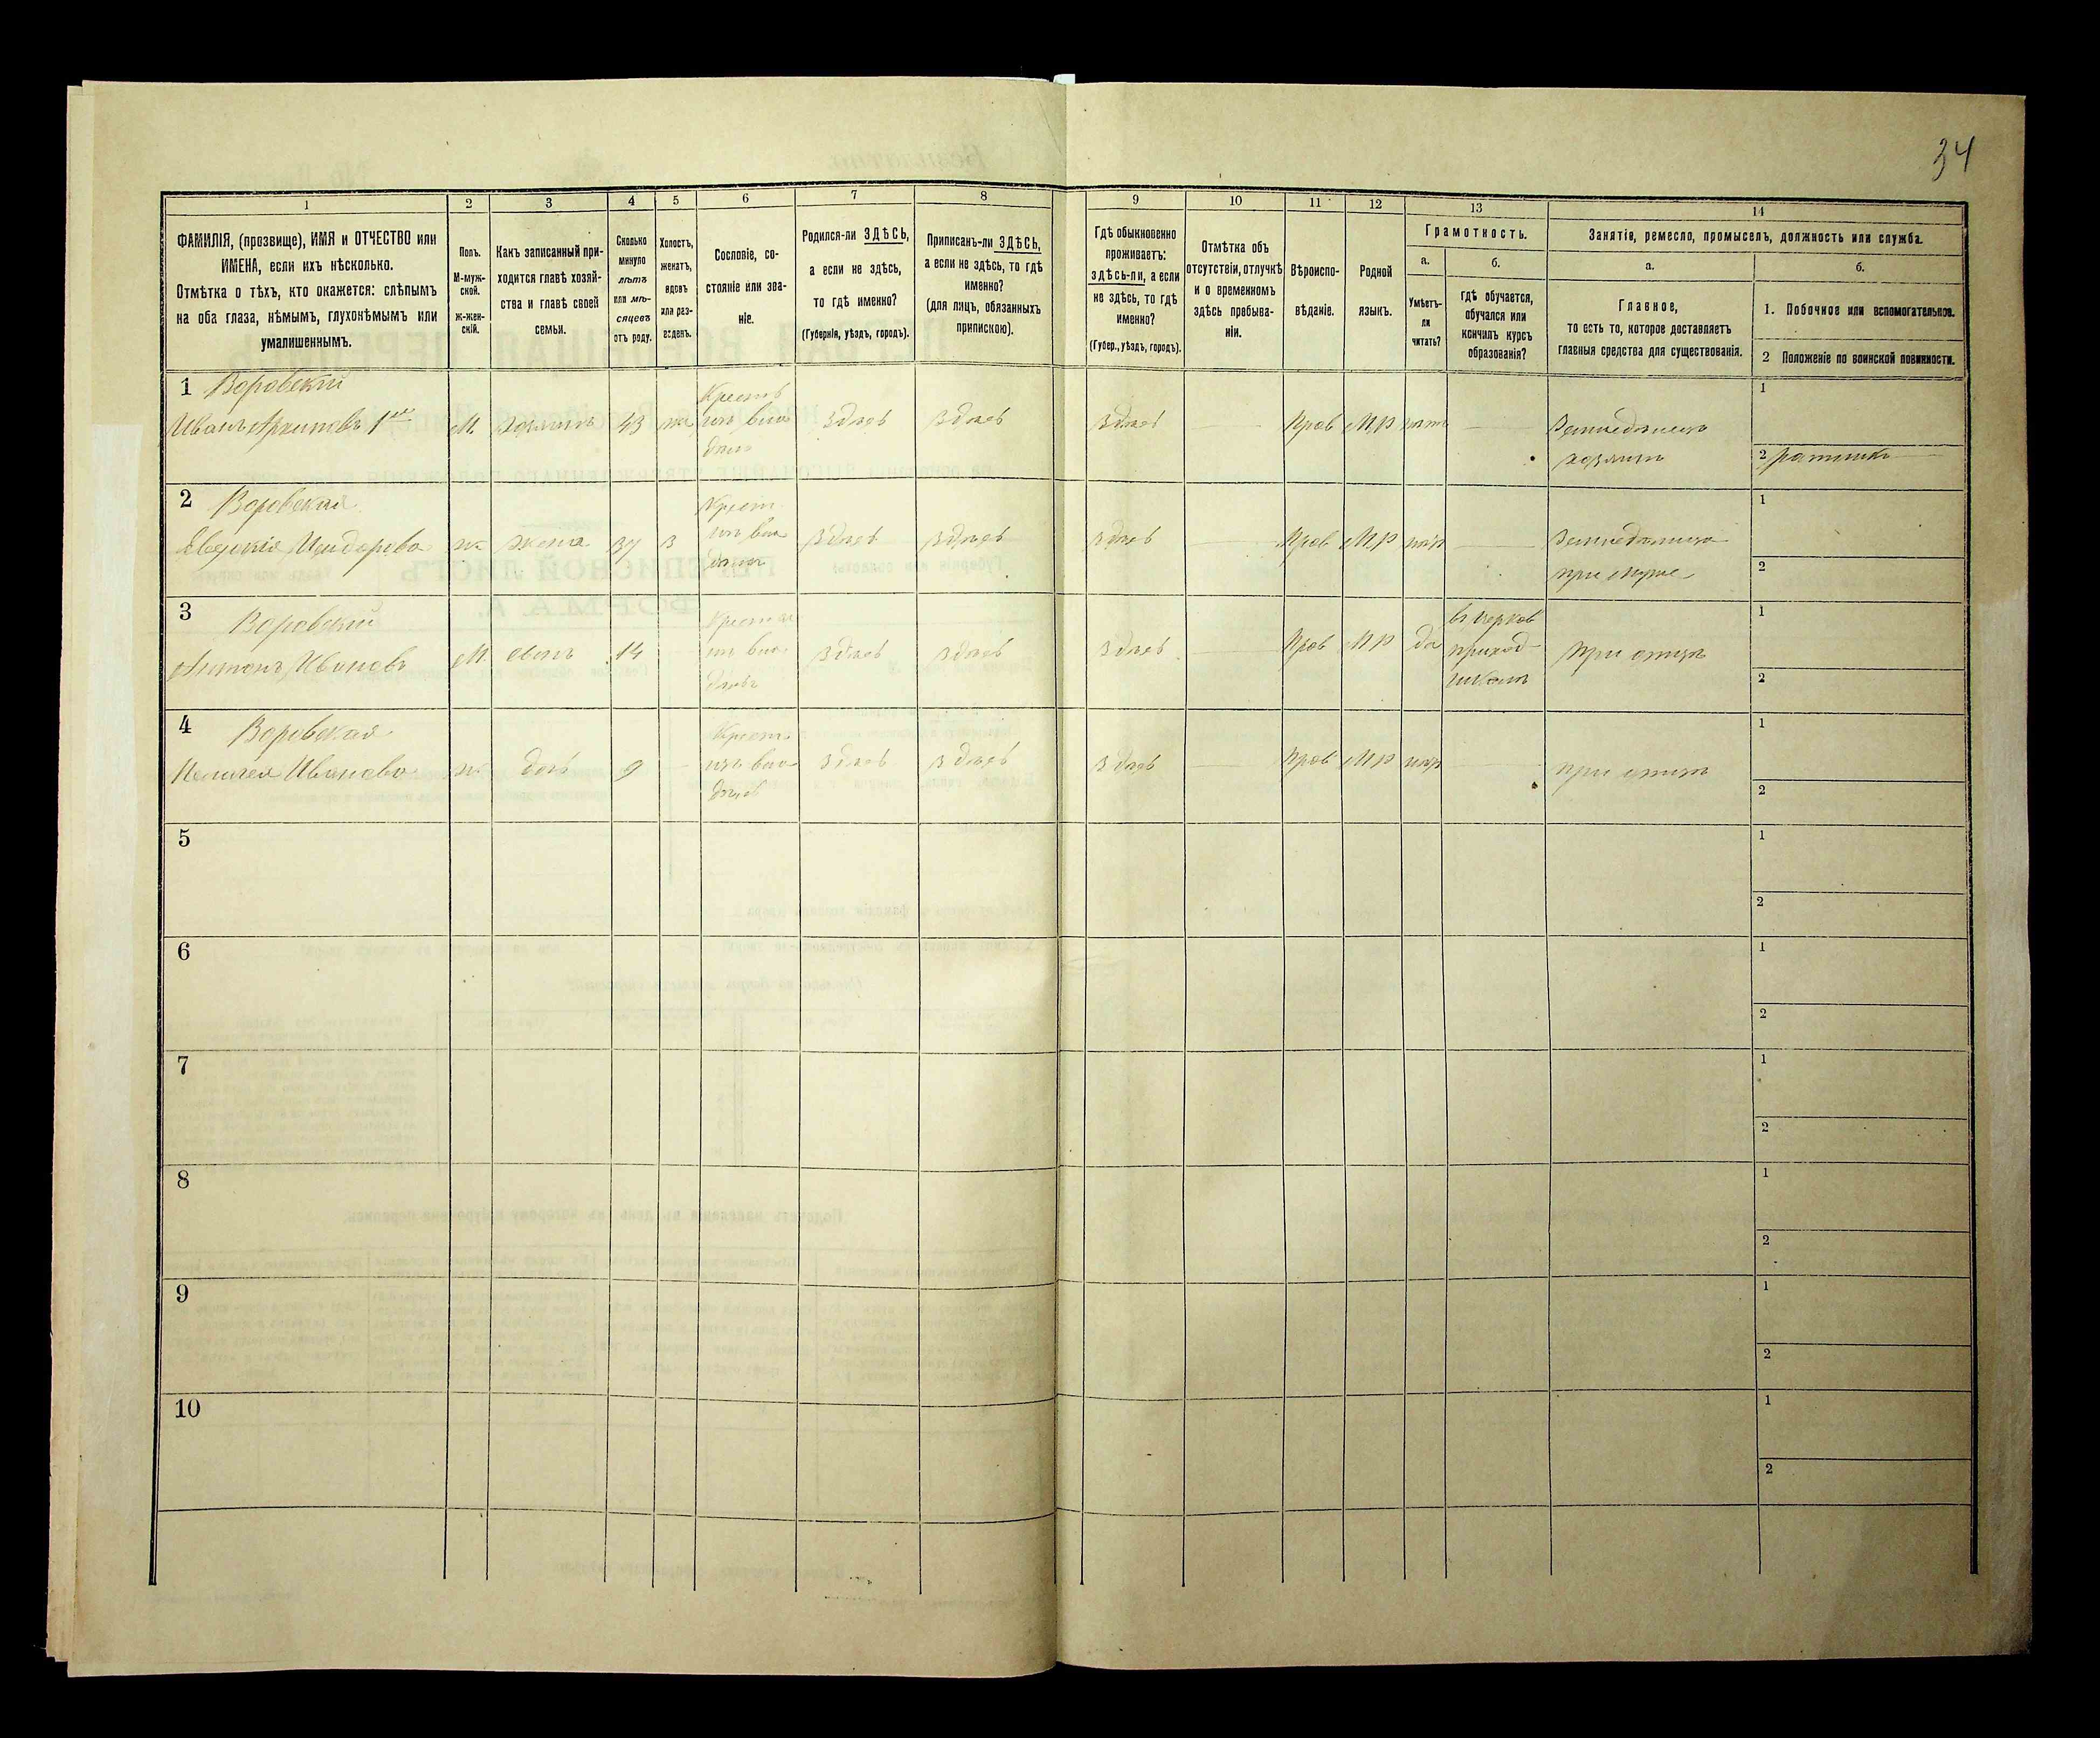 34
1
2
3
4
5
6
7
8
9
10
11
12
13
14
ФАМИЛІЯ, (прозвище), ИМЯ и ОТЧЕСТВО или
ИМЕНА, если ихъ нѣсколько.
Отмѣтка о тѣхъ, кто окажется: слѣпымъ
на оба глаза, нѣмымъ, глухонѣмымъ или
умалишеннымъ.
Полъ.
М-муж-
ской.
Ж-жен-
скій.
Какъ записанный при-
ходится главѣ хозяй-
ства и главѣ своей
семьи.
Сколько
минуло
лѣтъ
или мѣ-
сяцевъ
отъ роду.
Холостъ,
женатъ,
вдовъ
или раз-
веденъ.
Сословіе, со-
стояніе или зва-
ніе.
Родился-ли ЗДѢСЬ,
а если не здѣсь,
то гдѣ именно?
(Губернія, уѣздъ, городъ).
Приписанъ-ли ЗДѢСЬ,
а если не здѣсь, то гдѣ
именно?
(для лицъ, обязанныхъ
припискою).
Гдѣ обыкновенно
проживаетъ:
здѣсь-ли, а если
не здѣсь, то гдѣ
именно?
(Губер., уѣздъ, городъ).
Отмѣтка объ
отсутствіи, отлучкѣ
и о временномъ
здѣсь пребыва-
ніи.
Вѣроиспо-
вѣданіе.
Родной
языкъ.
Грамотность.
а.
Умѣетъ-
ли
читать?
б.
гдѣ обучается,
обучался или
кончилъ курсъ
образованія?
Занятія, ремесло, промыселъ, должность или служба.
а.
Главное,
то есть то, которое доставляетъ
главныя средства для существованія.
б.
1. Побочное или вспомогательное.
2 Положеніе по воинской повинности.
1 Воровский
Иванъ Архиповъ 1ый М. хозяинъ 43 Здѣсь Здѣсь Здѣсь Прав М,р нѣтъ Земледѣлецъ
хозяинъ
1
2 ратникъ
2 Воровская
Евдокія ж жена 37 З Здѣсь Здѣсь Здѣсь Прав М,р Земледѣлица
при мужѣ
1
2
3 Воровский
Антонъ Ивановъ М. сынъ 14 Здѣсь Здѣсь Здѣсь Прав М р да въ церков
приход
школѣ
при отцѣ
1
2
4 Воровская
Пелагея Иванова ж дочь 9 Здѣсь Здѣсь Здѣсь Прав М р при отцѣ
1
2
5
1
2
6
1
2
7
1
2
8
1
2
9
1
2
10
1
2